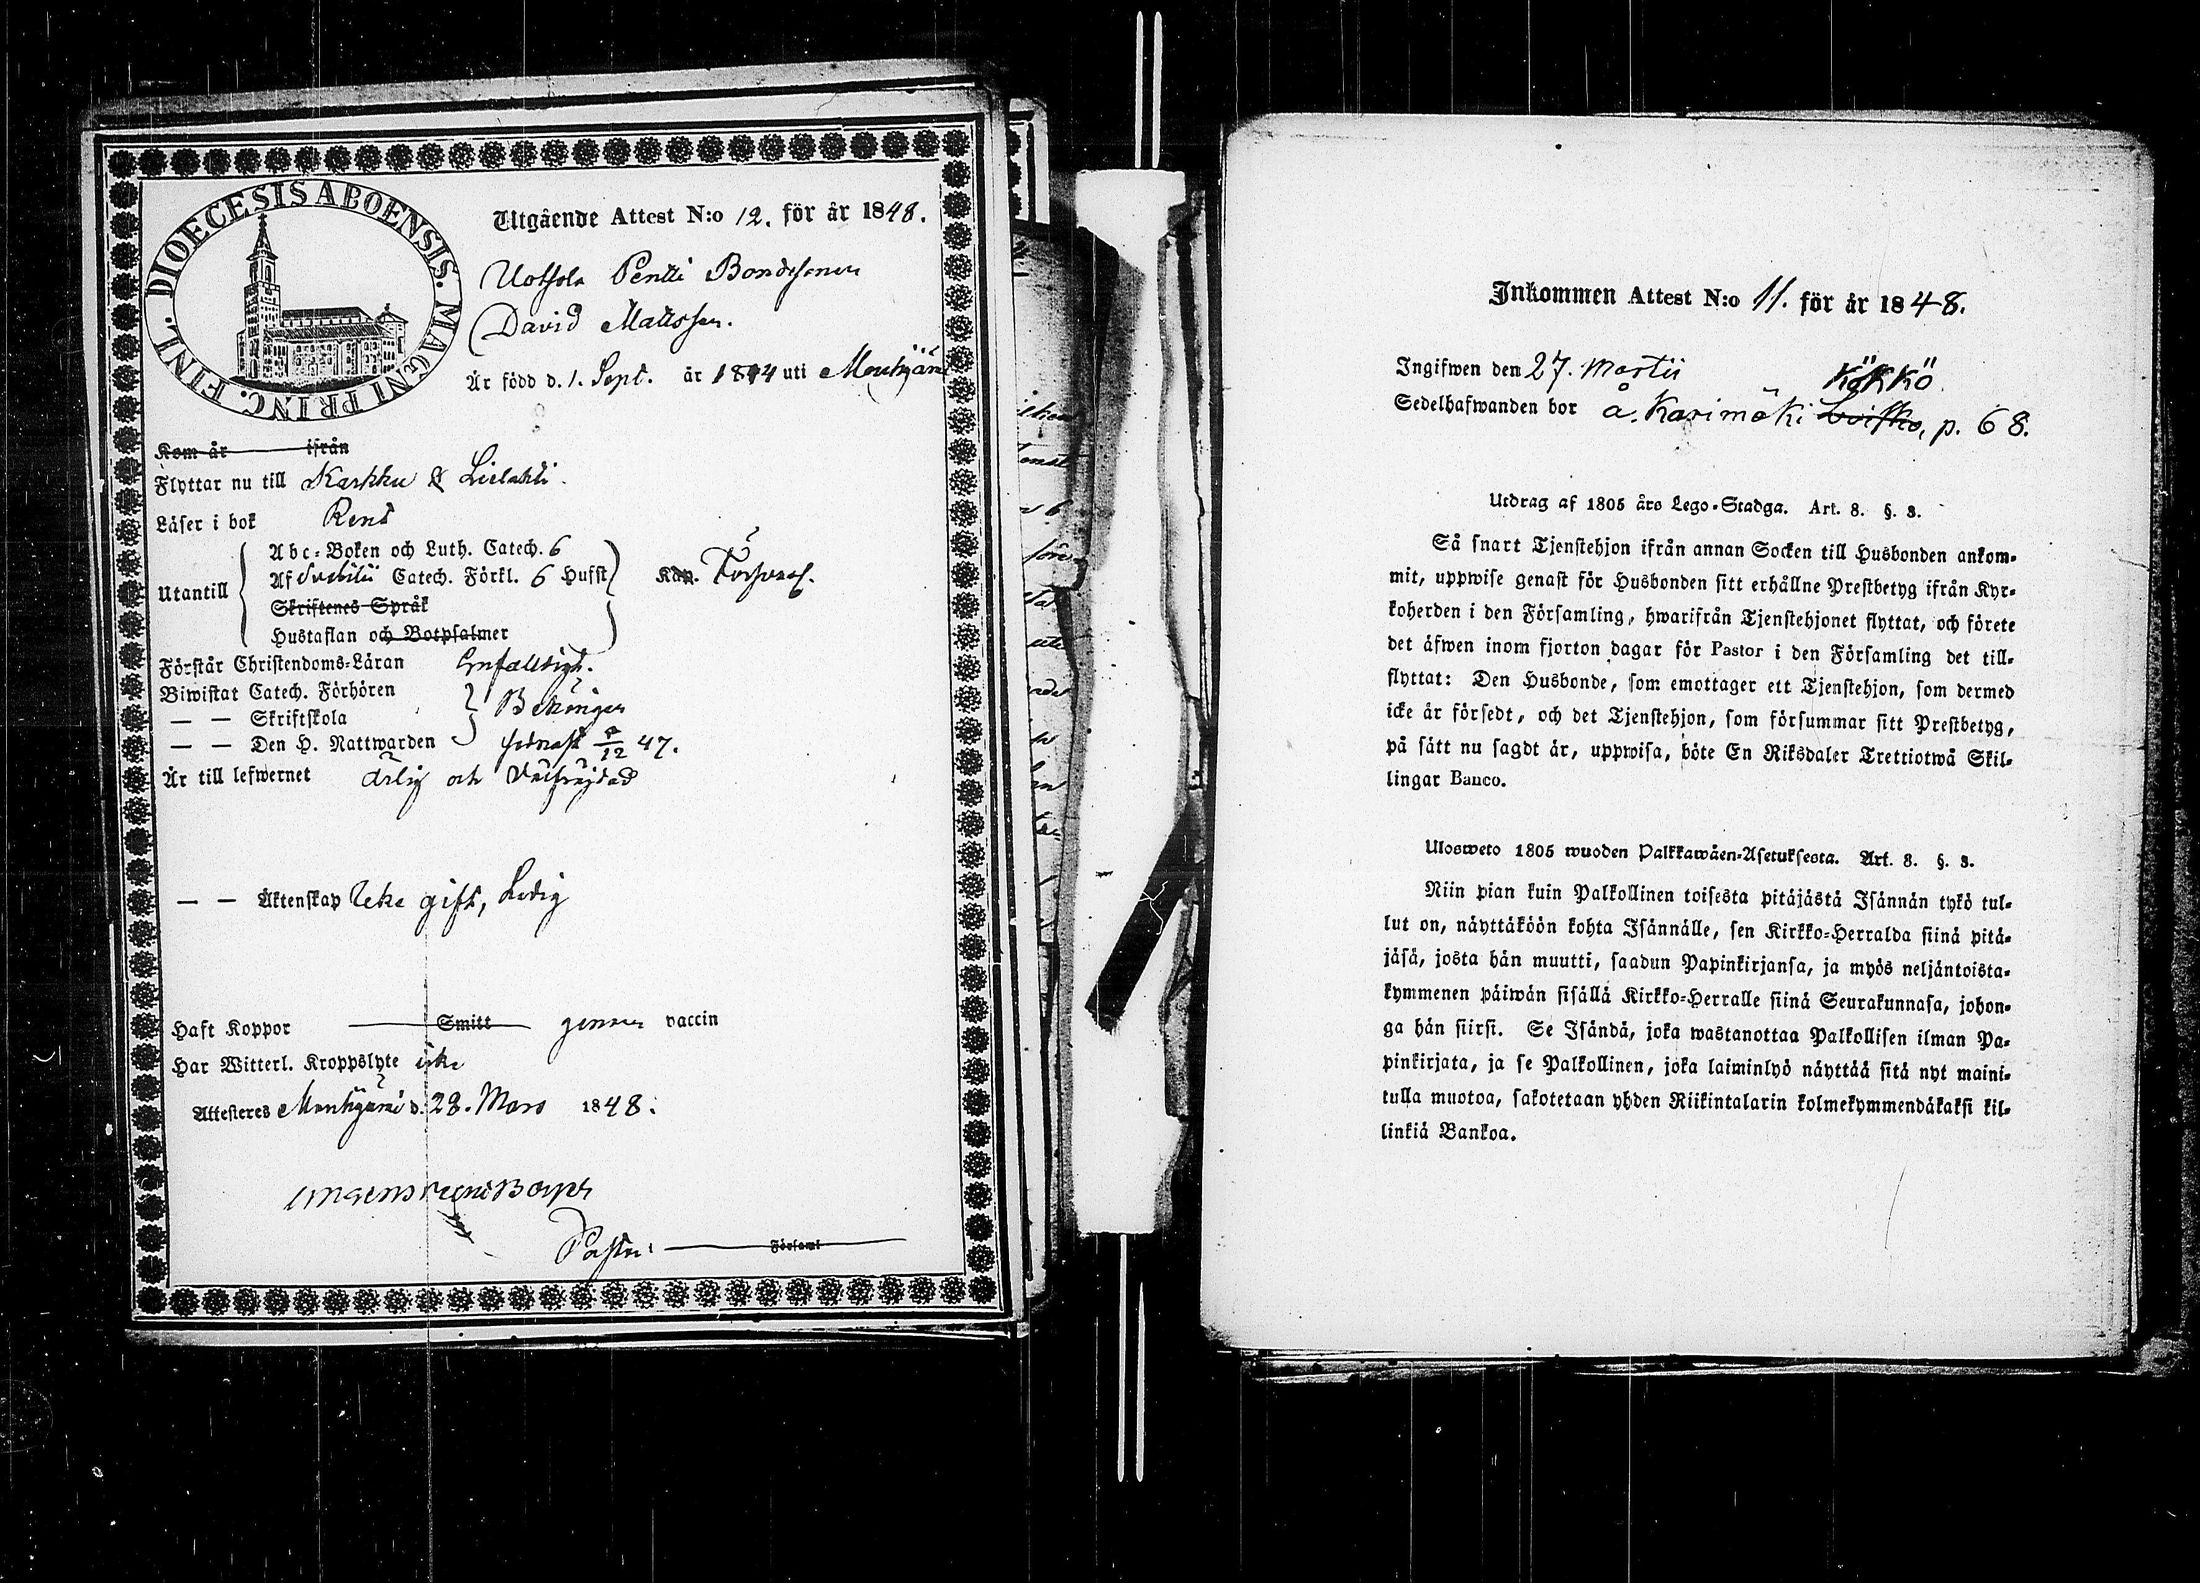 DIOECESIS ABOENSIS. MAGNI PRINC. FINL.
Utgående Attest N:o 12. för år 1848.
Pentti Bondesonen
David Mattsson.
Är född d. 1. Sept. år 1814 uti Mouhijärvi
Kom år ifrån
Flyttar nu till Karkku & Lielahti.
Läser i bok Rent
Utantill
Abc-Boken och Luth. Catech. 6
Af Svebilii Catech. Förkl. 6 Hufst
Skriftenes Språk
Hustaflan och Botpsalmer
Kan. Försvarl.
Förstår Christendoms-Läran Enfalldigt.
Biwistat Catech. Förhören
— — Skriftskola Behörigen
— — Den H. Nattwarden sednast /12 47.
Är till lefwernet ärlig och välfräjdad
— — Äktenskap Icke gift, Ledig
Haft Koppor Smitt genom vaccin
Har Witterl. Kroppslyte icke
Attesteras Mouhijärvi d. 28. Mars 1848.
Pastor: Församl
Inkommen Attest N:o 11. för år 1848.
Ingifwen den 27. Martii
Kökkö
Sedelhafwanden bor å. Karimäki p. 68.
Utdrag af 1805 års Lego-Stadga. Art. 8. §. 3.
Så snart Tjenstehjon ifrån annan Socken till Husbonden ankom-
mit, uppwise genast för Husbonden sitt erhållne Prestbetyg ifrån Kyr-
koherden i den Församling, hwarifrån Tjenstehjonet flyttat, och förete
det äfwen inom fjorton dagar för Pastor i den Församling det till-
flyttat: Den Husbonde, som emottager ett Tjenstehjon, som dermed
icke är försedt, och det Tjenstehjon, som försummar sitt Prestbetyg,
på sätt nu sagdt är, uppwisa, böte En Riksdaler Trettiotwå Skil-
lingar Banco.
Ulosweto 1805 wuoden Palkkawäen-Asetuksesta. Art. 8. §. 3.
Niin pian kuin Palkollinen toisesta pitäjästä Isännän tykö tul-
lut on, näyttäköön kohta Isännälle, sen Kirkko-Herralda siinä pitä-
jäsä, josta hän muutti, saadun Papinkirjansa, ja myös neljäntoista-
kymmenen päiwän sisällä Kirkko-Herralle siinä Seurakunnasa, johon-
ga hän siirsi. Se Isändä, joka wastanottaa Palkollisen ilman Pa-
pinkirjata, ja se Palkollinen, joka laiminlyö näyttää sitä nyt maini-
tulla muotoa, sakotetaan yhden Riikintalarin kolmekymmendäkaksi kil-
linkiä Bankoa.